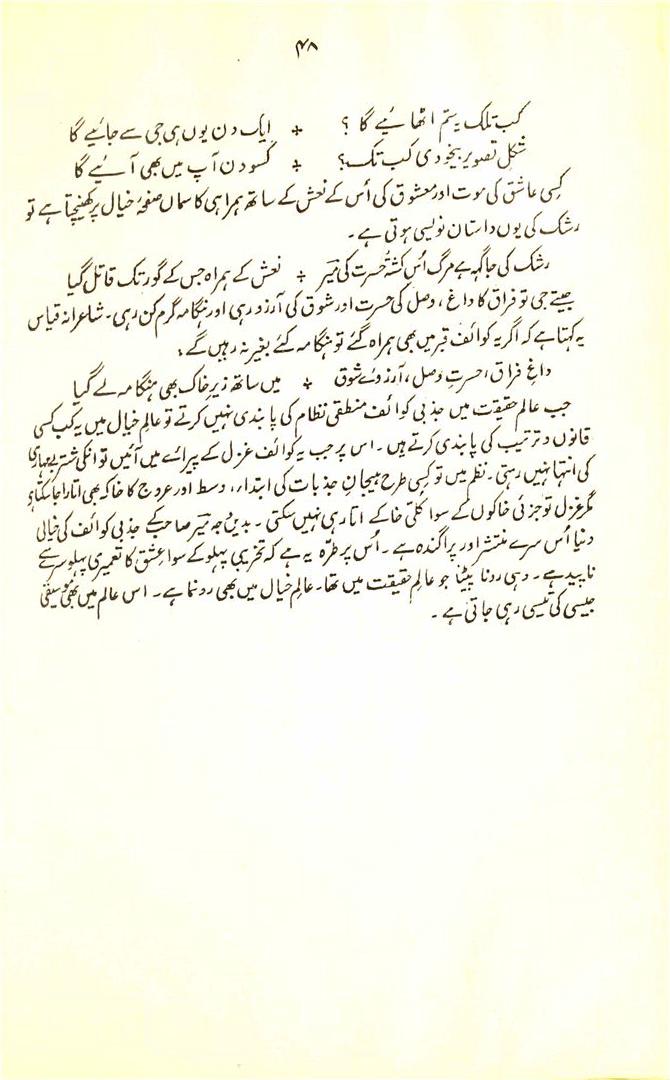 ۴۸
کب تلک یہ ستم اٹھائیے گا ؟ ٭ ایک دن یوں ہی جی سے جائیے گا
شکلِ تصویر بیخودی کب تک؟ ٭ کسو دن آپ میں بھی آئیے گا
کسی عاشق کی موت اور معشوق کی اُس کے نعش کے ساتھ ہمراہی کا سماں صفحۂ خیال پر کھینچتا ہے تو
رشک کی یوں داستان نویسی ہوتی ہے۔
رشک کی جاگہہ ہے مرگ اُس کشتۂ حسرت کی میر ٭ نعش کے ہمراہ جس کے گور تک قاتل گیا
جیتے جی تو فراق کا داغ، وصل کی حسرت اور شوق کی آرزو رہی اور ہنگامہ گرم کن رہی۔ شاعرانہ قیاس
یہ کہتا ہے کہ اگر یہ کوائف قبر میں بھی ہمراہ گئے تو ہنگامہ کئے بغیر نہ رہیں گے:
داغِ فراق، حسرتِ وصل، آرزوئے شوق ٭ میں ساتھ زیرِ خاک بھی ہنگامہ لے گیا
جب عالمِ حقیقت میں جذبی کوائف منطقی نظام کی پابندی نہیں کرتے تو عالمِ خیال میں یہ کب کسی
قانون و ترتیب کی پابندی کرتے ہیں۔ اس پر جب یہ کوائف غزل کے پیرائے میں آئیں تو انکی شتر بے مہاری
کی انتہا نہیں رہتی۔ نظم میں تو کسی طرح ہیجانِ جذبات کی ابتداء، وسط اور عروج کا خاکہ بھی اتارا جا سکتا ہے
مگر غزل تو جزئی خاکوں کے سوا کلّی خاکے اتار ہی نہیں سکتی۔ بدیں وجہ میر صاحب کے جذبی کوائف کی خیالی
دنیا اُس سرے منتشر اور پراگندہ ہے۔ اُس پر طرّہ یہ ہے کہ تخریبی پہلو کے سوا عشق کا تعمیری پہلو سرے سے
ناپید ہے۔ وہی رونا پیٹنا جو عالمِ حقیقت میں تھا۔ عالمِ خیال میں بھی رونما ہے۔ اس عالم میں بھی موسیقی
جیسی کی تیسی رہی جاتی ہے۔